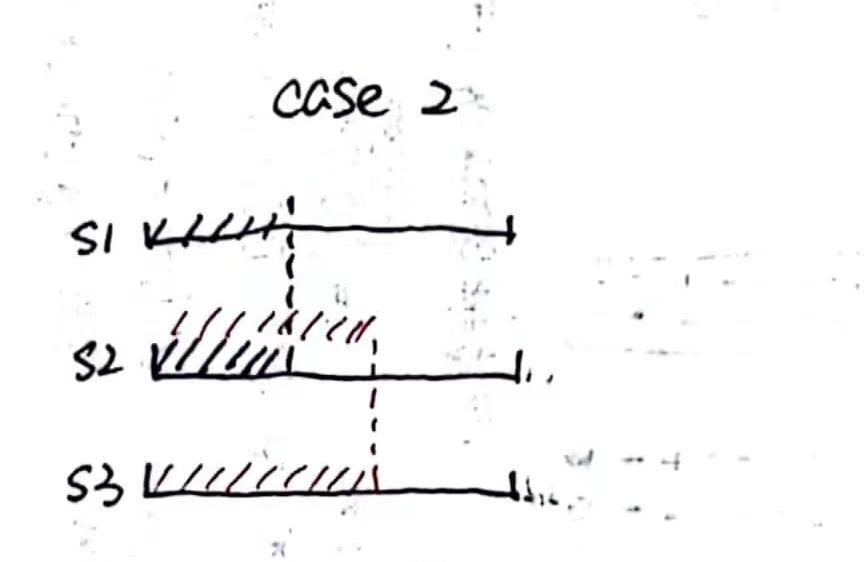 case 2
S1
S2
S3